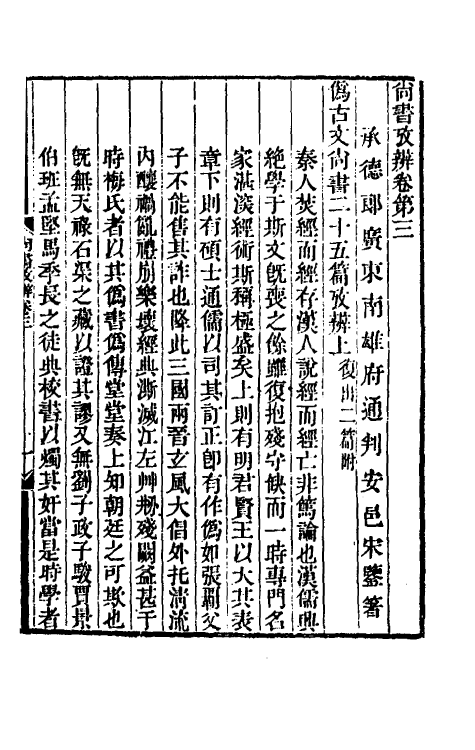 尚書攷辨卷第三
承德郎廣東南雄府通判安邑宋鑒著
僞古文尚書二十五篇攷辨上復出二篇附
秦人焚經而經存漢人說經而經亡非篤論也漢儒興
絕學于斯文旣喪之餘雖復抱殘守缺而一時專門名
家湛淡經術斯稱極盛矣上則有明君賢王以大其表
章下則有碩士通儒以司其訂正卽有作僞如張霸父
子不能售其詐也降此三國兩晉玄風大倡外托淸流
內釀禍亂禮崩樂壞經典澌滅江左艸刱殘闕益甚于
時梅氏者以其僞書僞傳堂堂奏上知朝廷之可欺也
旣無天祿石渠之藏以證其謬又無劉子政子駿賈景
伯班孟堅馬季長之徒典校書以燭其奸當是時學者
尚書攷辨卷三